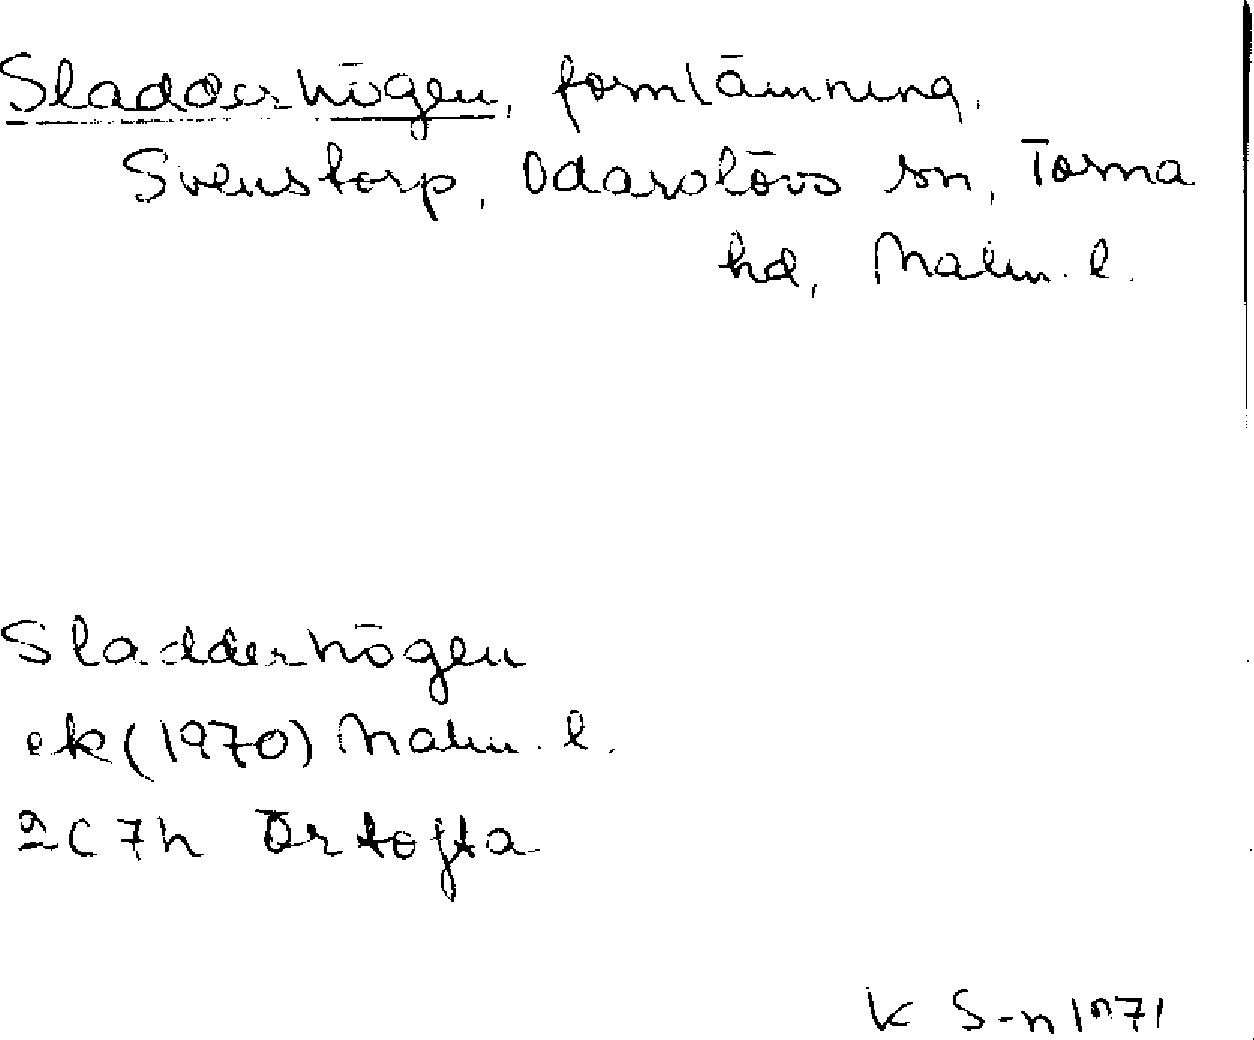 Sladderhögen, fornlämning,
Svenstorp, Odarslövs sn, Torna
hd, Malm. l.
Sladderhögen
ek (1970) Malm. l.
2C 7h Örtofta
K S-n 1971